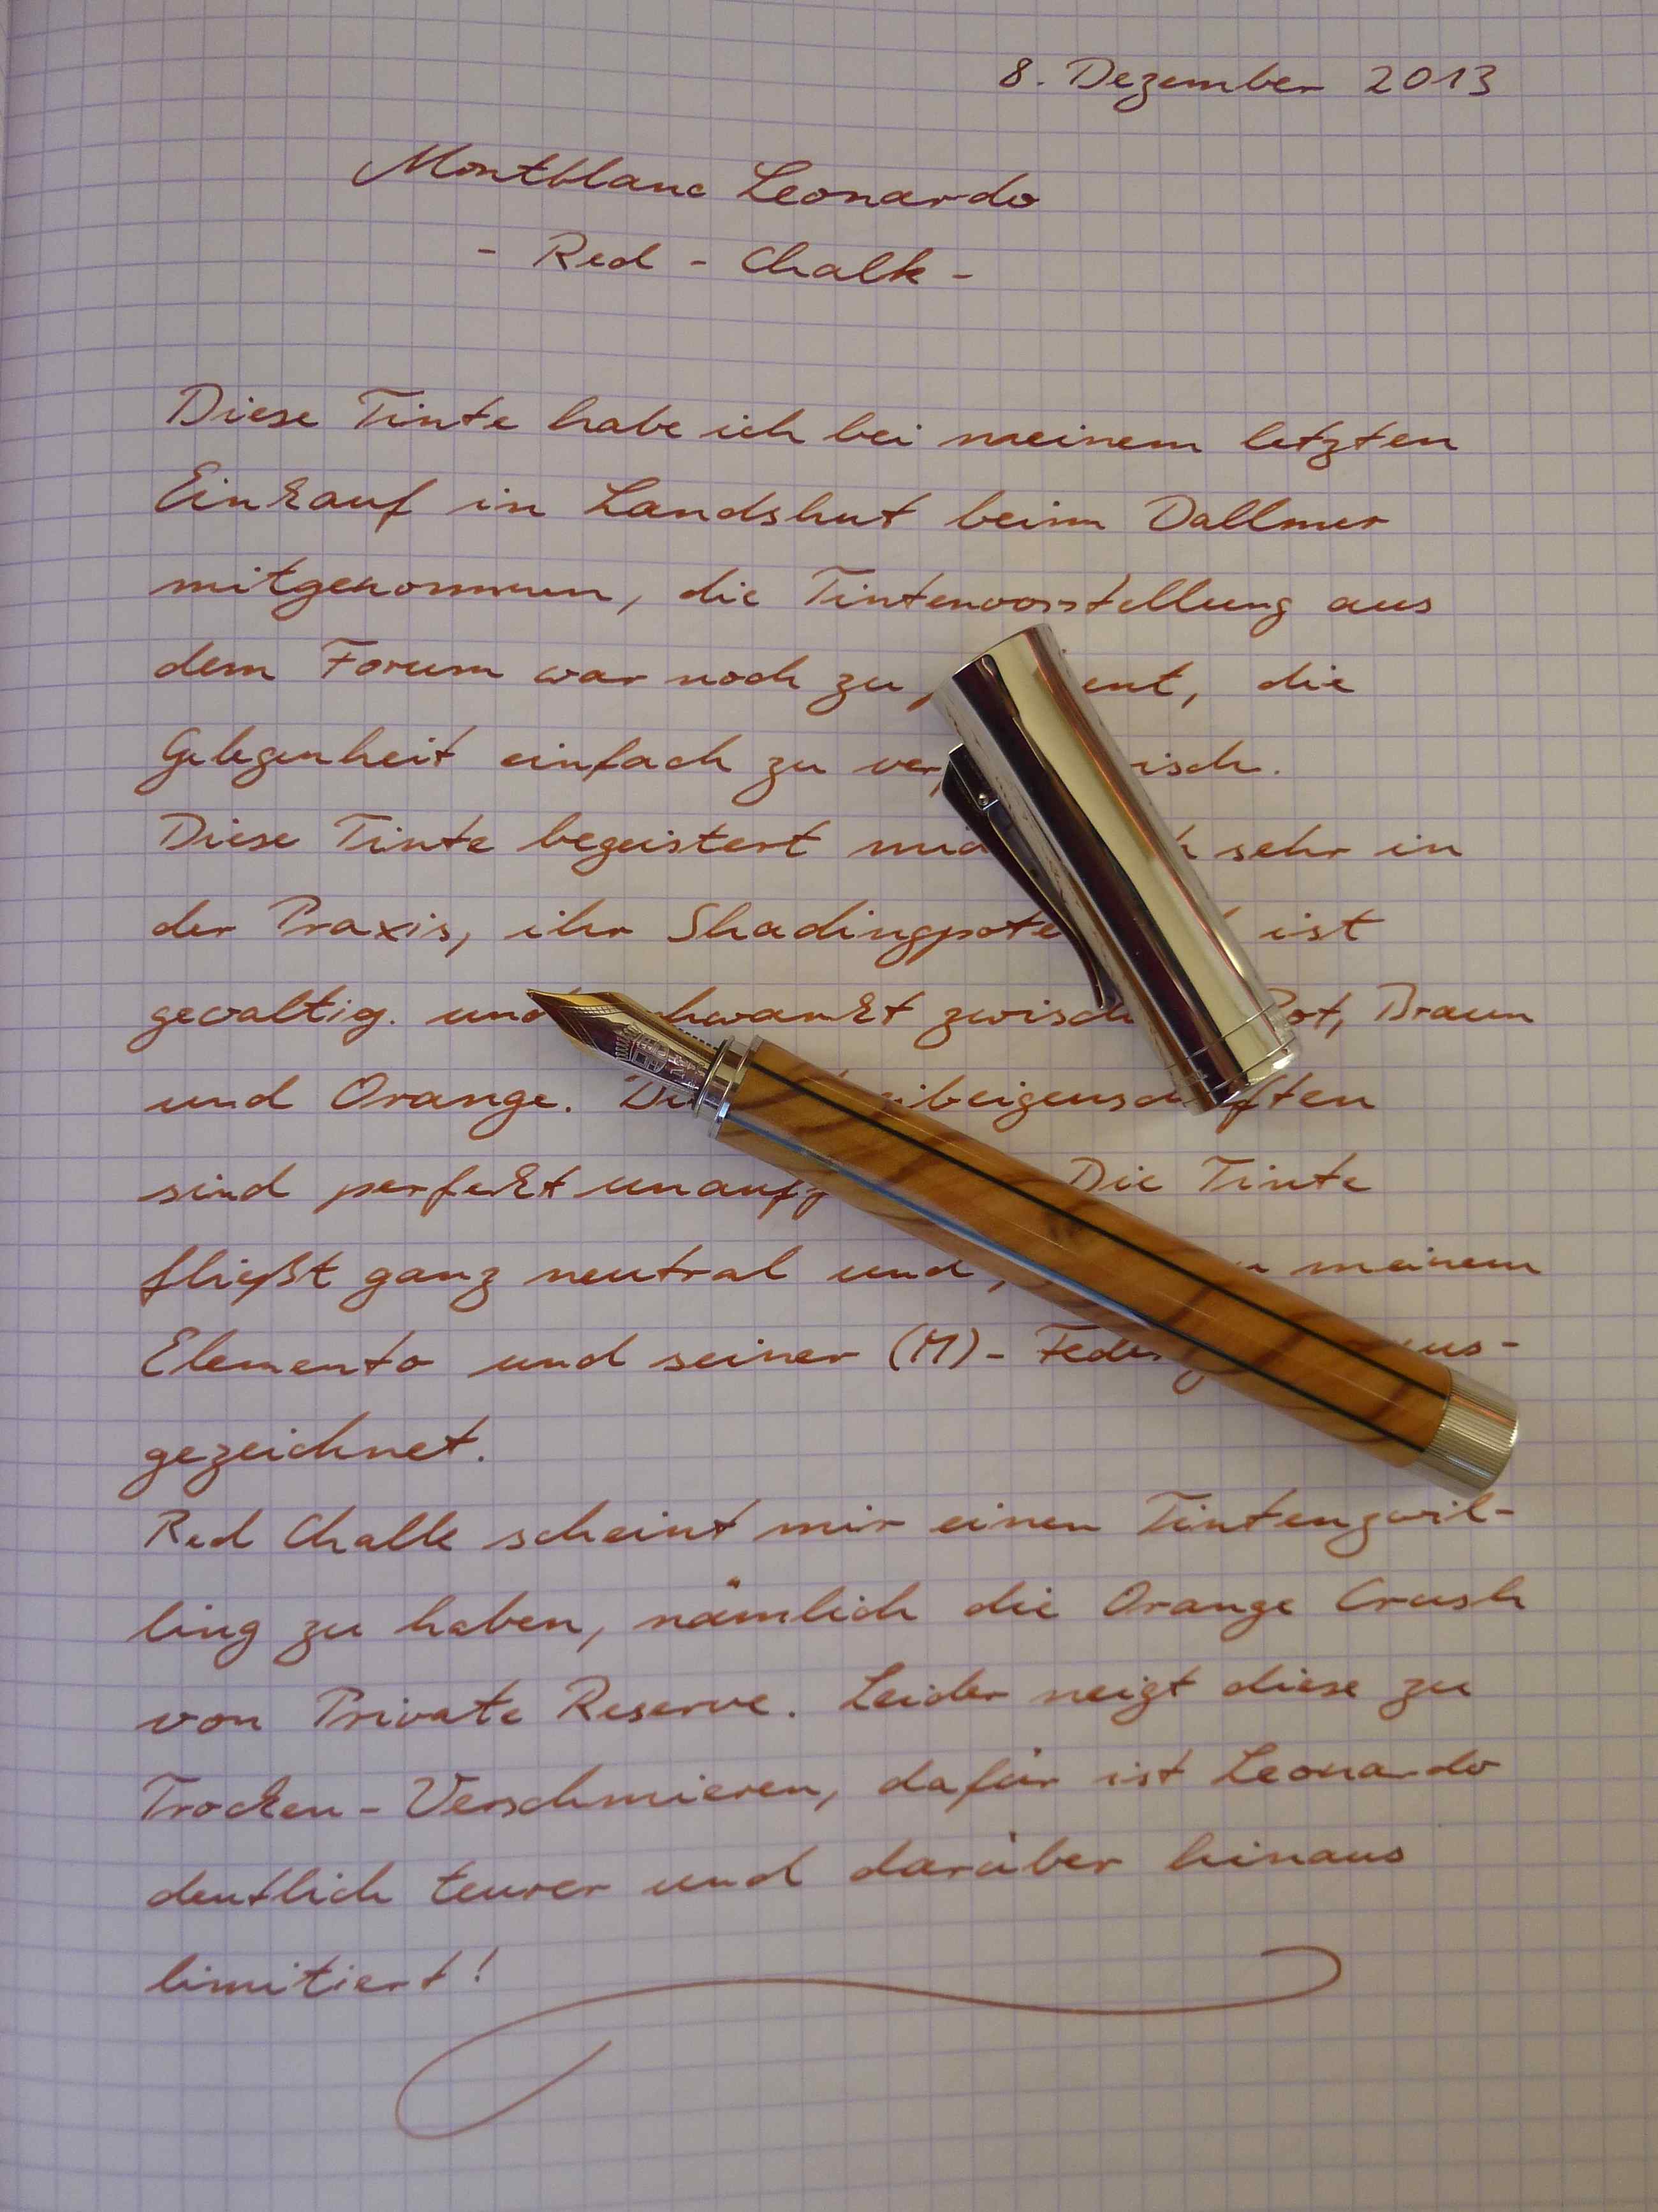 8. Dezember 2013
Montblanc Leonardo
- Red - Chalk -
Diese Tinte habe ich bei meinem letzten
Einkauf in Landshut beim Dallmer
mitgenommen, die Tintenvorstellung aus
dem Forum war noch zu ent, die
Gelegenheit einfach zu ver isch.
Diese Tinte begeistert mich sehr in
der Praxis, ihr Shadingpote ist
gewaltig. und schwankt zwischen Rot, Braun
und Orange. Die eibeigenschaften
sind perfekt unauff Die Tinte
fließt ganz neutral und, meinem
Elemento und seiner (M)- Feder aus-
gezeichnet.
Red Chalk scheint mir einen Tintenzwil-
ling zu haben, nämlich die Orange Crush
von Private Reserve. Leider neigt diese zu
Trocken-Verschmieren, dafür ist Leonardo
deutlich teurer und darüber hinaus
limitiert!